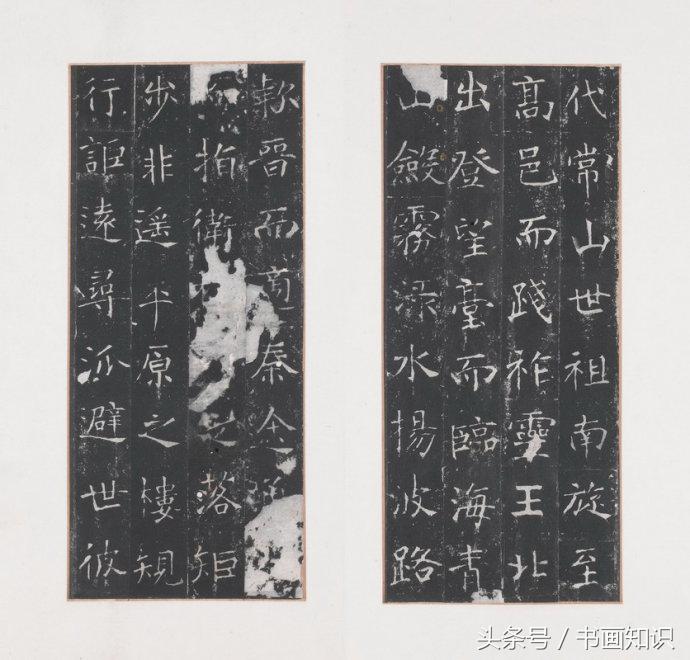 代常山世祖南旋至
高邑而踐祚靈王北
出登望臺而臨海青
山斂霧淥水揚波路
款晉而適秦
拍衛落矩
步非遥平原之樓規
行詎遠尋泒避世彼
头条号 / 书画知识